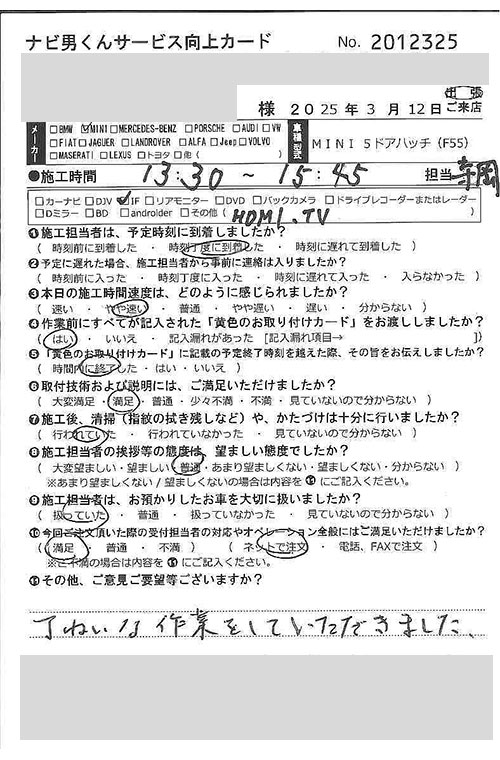 ナビ男くんサービス向上カード No. 2012325
様 2025年 3月 12日 出張 ご来店
メーカー □BMW ☑MINI □MERCEDES-BENZ □PORSCHE □AUDI □VW
□FIAT □JAGUER □LANDROVER □ALFA □Jeep □VOLVO
□MASERATI □LEXUS □トヨタ □他 (
車種型式 MINI 5ドアハッチ (F55)
●施工時間 13:30 ~ 15:45 担当 寺岡
□カーナビ □DJV ☑IF □リアモニター □DVD □バックカメラ □ドライブレコーダーまたはレーダー
□Dミラー □BD □androider □その他 ( HDMI. TV )
❶施工担当者は、予定時刻に到着しましたか?
( 時刻前に到着した ・ 時刻丁度に到着した ・ 時刻に遅れて到着した )
❷予定に遅れた場合、施工担当者から事前に連絡は入りましたか?
( 時刻前に入った ・ 時刻丁度に入った ・ 時刻に遅れて入った ・ 入らなかった )
❸本日の施工時間速度は、どのように感じられましたか?
( 速い ・ やや速い ・ 普通 ・ やや遅い ・ 遅い ・ 分からない )
❹作業前にすべてが記入された「黄色のお取り付けカード」をお渡ししましたか?
( はい ・ いいえ ・ 記入漏れがあった [記入漏れ項目→ ])
❺「黄色のお取り付けカード」に記載の予定終了時刻を越えた際、その旨をお伝えしましたか?
( 時間内に終了した ・ はい ・ いいえ )
❻取付技術および説明には、ご満足いただけましたか?
( 大変満足 ・ 満足 ・ 普通 ・ 少々不満 ・ 不満 ・ 見ていないので分からない )
❼施工後、清掃(指紋の拭き残しなど)や、かたづけは十分に行いましたか?
( 行われていた ・ 行われていなかった ・ 見ていないので分からない )
❽施工担当者の挨拶等の態度は、望ましい態度でしたか?
( 大変望ましい・望ましい・普通・あまり望ましくない・望ましくない・分からない )
※あまり望ましくない / 望ましくないの場合は内容を⓫にご記入ください。
❾施工担当者は、お預かりしたお車を大切に扱いましたか?
( 扱っていた ・ 普通 ・ 扱っていなかった ・ 見ていないので分からない )
❿今回ご注文頂いた際の受付担当者の対応やオペレーション全般にはご満足いただけましたか?
( 満足 ・ 普通 ・ 不満 ) ( ネットで注文 ・ 電話、FAXで注文 )
※ご不満の場合は内容を⓫にご記入ください。
⓫その他、ご意見ご要望等ございますか?
てねいな作業をしていただきました、